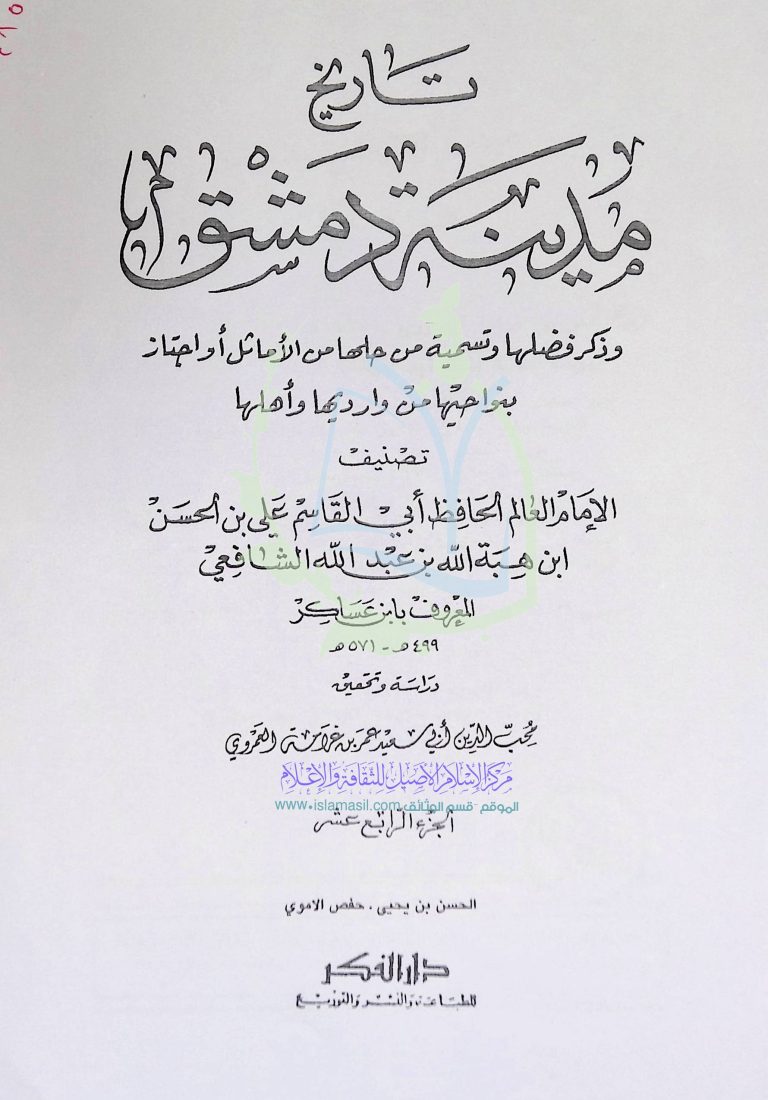 تاريخ
مدينة دمشق
وذكر فضلها وتسمية من حلها من الأماثل أو اجتاز
بنواحيها من وارديها وأهلها
تصنيف
الإمام العالم الحافظ أبي القاسم علي بن الحسن
ابن هبة الله بن عبد الله الشافعي
المعروف بابن عساكر
٤٩٩ هـ - ٥٧١ هـ
دراسة وتحقيق
محب الدين أبي سعيد عمر بن غرامة العمروي
مركز الإسلام الأصيل للثقافة والإعلام
الموقع - قسم الوثائق www.islamasil.com
الجزء الرابع عشر
الحسن بن يحيى - حفص الاموي
دار الفكر
للطباعة والنشر والتوزيع